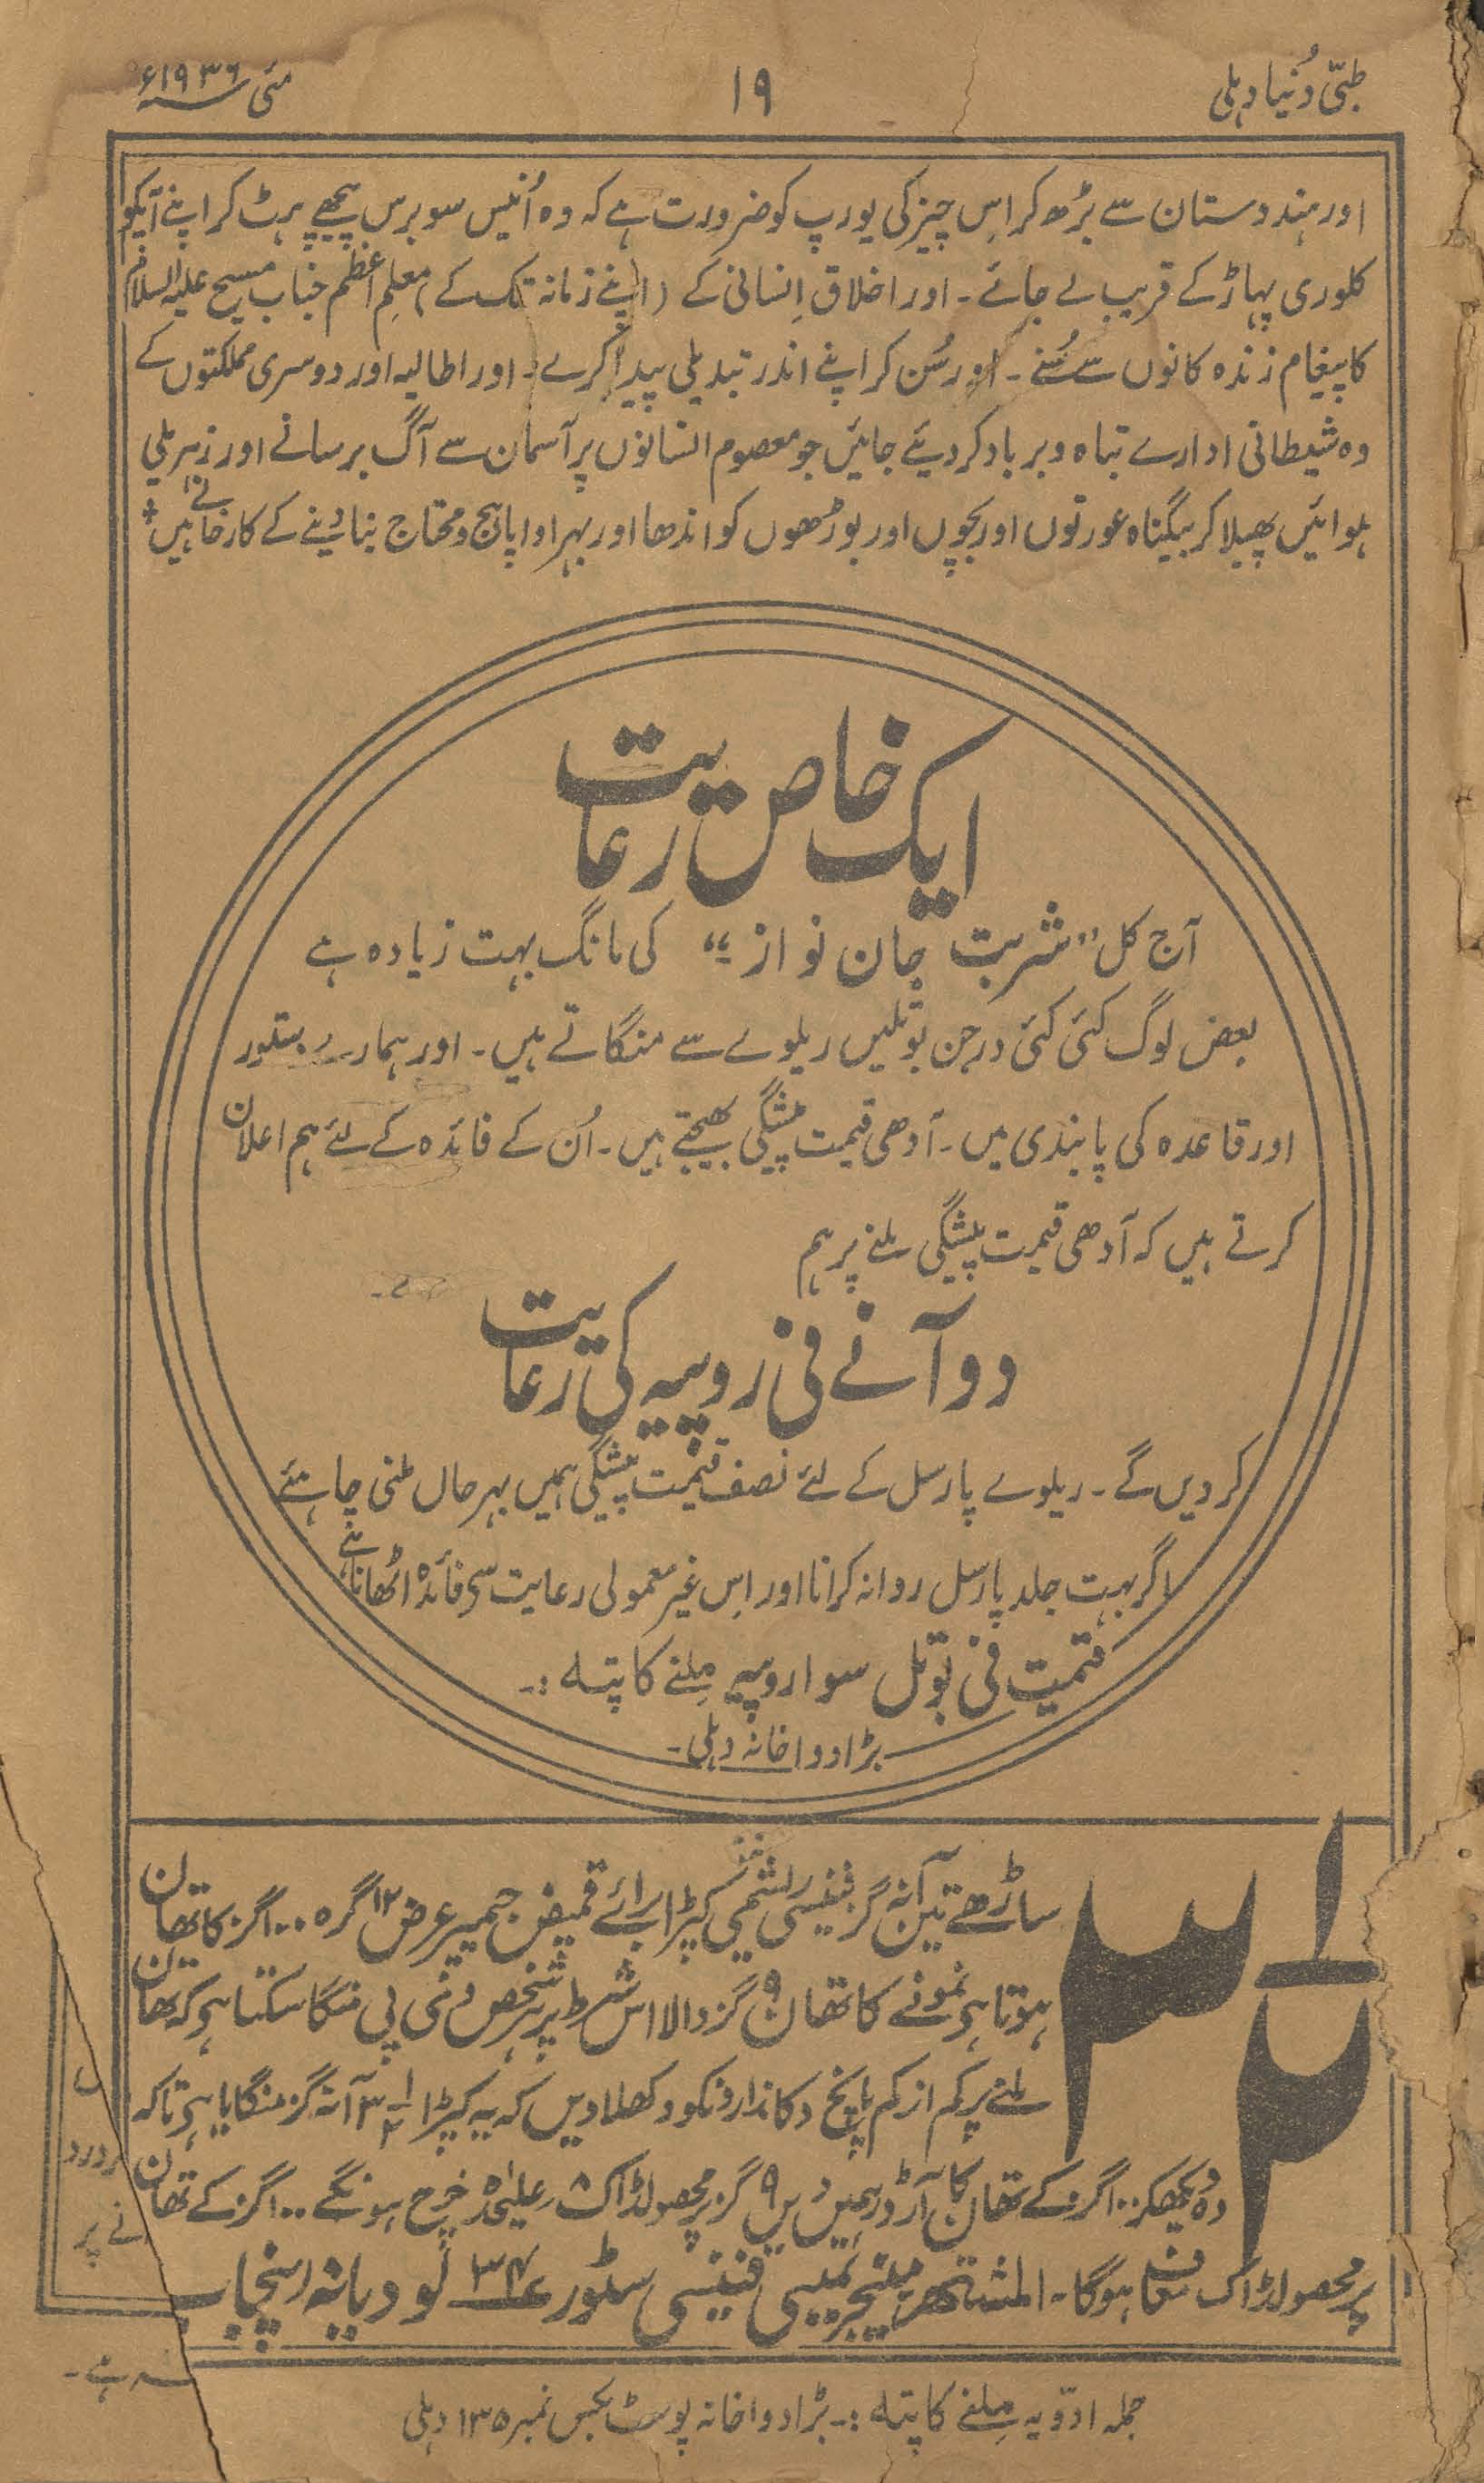 طبّی دُنیا دہلی
۱۹
مئی ۱۹۳۶ء
اور ہندوستان سے بڑھ کر اِس چیز کی یورپ کو ضرورت ہے کہ وہ اُنیس سو برس پیچھے ہٹ کر اپنے آپکو
کلوری پہاڑ کے قریب لے جائے۔ اور اخلاق اِنسانی کے (اپنے زمانہ تک کے) معلمِ اعظم جناب مسیح علیہ السلام
کا پیغام زندہ کانوں سے سُنے۔ اور سُن کر اپنے اندر تبدیلی پیدا کرے۔ اور اطالیہ اور دوسری مملکتوں کے
وہ شیطانی ادارے تباہ و برباد کر دیئے جائیں جو معصوم انسانوں پر آسمان سے آگ برسانے اور زہریلی
ہوائیں پھیلا کر بیگناہ عورتوں اور بچوں اور بوڑھوں کو اندھا اور بہرا و اپاہج و محتاج بنا دینے کے کارخانے ہیں؞
ایک خاص رعایت
آج کل "شربت جان نواز" کی مانگ بہت زیادہ ہے
بعض لوگ کئی کئی درجن بوتلیں ریلوے سے منگاتے ہیں۔ اور ہمارے دستور
اور قاعدہ کی پابندی میں۔ آدھی قیمت پیشگی بھیجتے ہیں۔ اُن کے فائدہ کے لئے ہم اعلان
کرتے ہیں کہ آدھی قیمت پیشگی ملنے پر ہم
دو آنے فی روپیہ کی رعایت
کر دیں گے۔ ریلوے پارسل کے لئے نصف قیمت پیشگی ہمیں بہر حال ملنی چاہئے
اگر بہت جلد پارسل روانہ کرانا اور اِس غیر معمولی رعایت سے فائدہ اٹھانا ہے
قیمت فی بوتل سوا روپیہ ملنے کا پتہ :۔
بڑا دواخانہ دہلی۔
۳ ۱/۲
ساڑھے تین آنہ گز فینسی ریشمی کپڑا برائے قمیض جمپیر عرض ۱۲ گرہ ۱۰۰ گز کا تھان
ہوتا ہے نمونے کا تھان ۹ گز والا اس شرط پر ہر شخص وی پی منگا سکتا ہے کہ تھان
ملنے پر کم از کم پانچ دکاندارونکو دکھلا دیں کہ یہ کپڑا ۳ ۱/۲ آنہ گز منگایا ہے تاکہ
وہ دیکھکر ۱۰۰ گز کے تھان کا آرڈر ہمیں دیں ۹ گز پر محصولڈاک ۸ر علیحدہ خرچ ہونگے ۱۰۰ گز کے تھان
پر محصولڈاک معاف ہوگا۔ المشتہر منیجر بمبئی فینسی سٹور ۳۴ لودہیانہ پنجاب
ں
ر درد
نے پر
ہے۔
جملہ ادویہ ملنے کا پتہ :۔ بڑا دواخانہ پوسٹ بکس نمبر ۱۳۵ دہلی